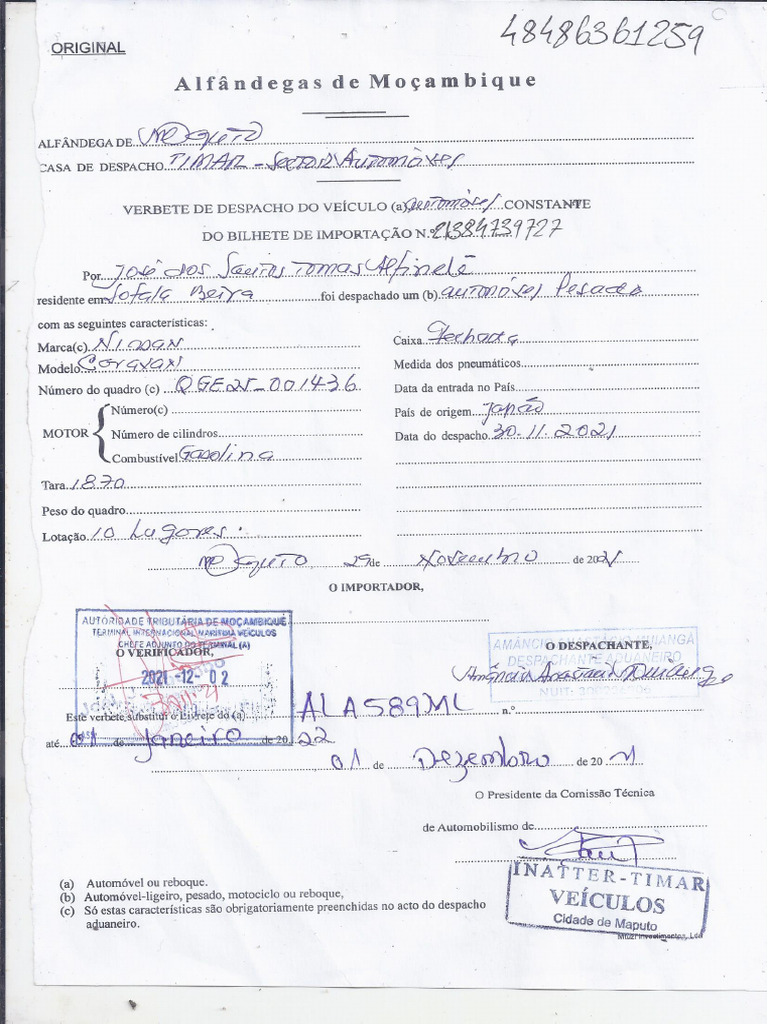 48486361259
ORIGINAL
Alfândegas de Moçambique
ALFÂNDEGA DE Maputo
CASA DE DESPACHO TIMAR - Sector Automóvel
VERBETE DE DESPACHO DO VEÍCULO (a) automóvel CONSTANTE
DO BILHETE DE IMPORTAÇÃO N.º 21384739727
Por José dos Santos Tomas Alfinete
residente em Sofala Beira foi despachado um (b) automóvel Pesado
com as seguintes características:
Marca(c) Nissan Caixa Fechada
Modelo Caravan Medida dos pneumáticos
Número do quadro (c) QGE25-001436 Data da entrada no País
MOTOR Número(c) País de origem Japão
Número de cilindros Data do despacho 30-11-2021
Combustível Gasolina
Tara 1870
Peso do quadro
Lotação 10 Lugares.
Maputo 29 de Novembro de 2021
O IMPORTADOR,
AUTORIDADE TRIBUTÁRIA DE MOÇAMBIQUE
TERMINAL INTERNACIONAL MARÍTIMA VEÍCULOS
CHEFE ADJUNTO DO TERMINAL (A)
O VERIFICADOR,
2021-12-02
AMÂNCIO ANASTÁCIO NHIANGA
O DESPACHANTE,
DESPACHANTE ADUANEIRO
NUIT:
Este verbete substitui o Livrete do (a) ALA589ML n.º
até 01 de Janeiro de 2022
01 de Dezembro de 2021
O Presidente da Comissão Técnica
de Automobilismo de
INATTER-TIMAR
VEÍCULOS
Cidade de Maputo
(a) Automóvel ou reboque.
(b) Automóvel-ligeiro, pesado, motociclo ou reboque,
(c) Só estas características são obrigatoriamente preenchidas no acto do despacho
aduaneiro.